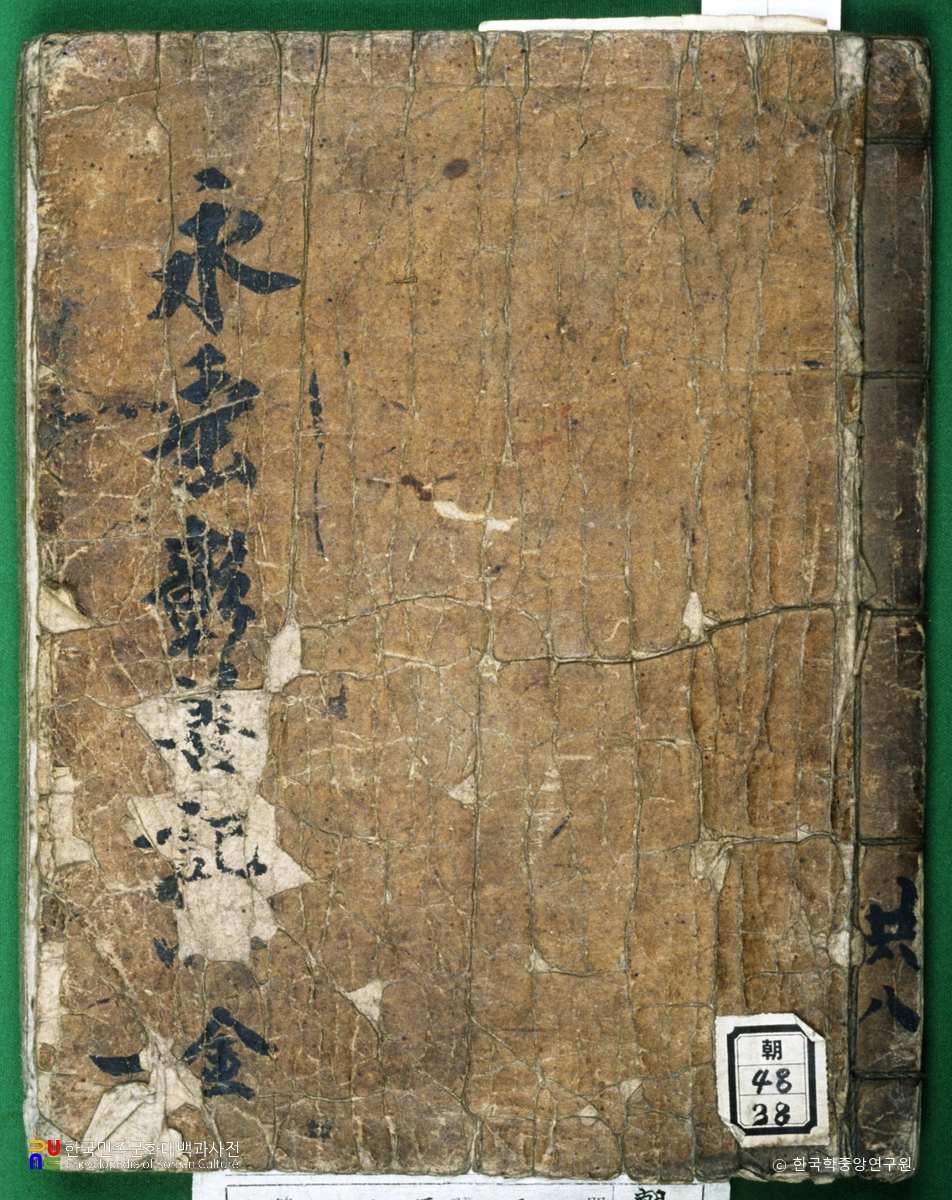 共八
永垂彰善記 金
一
朝
48
38
한국민족문화대백과사전
Encyclopedia of Korean Culture
© 한국학중앙연구원.